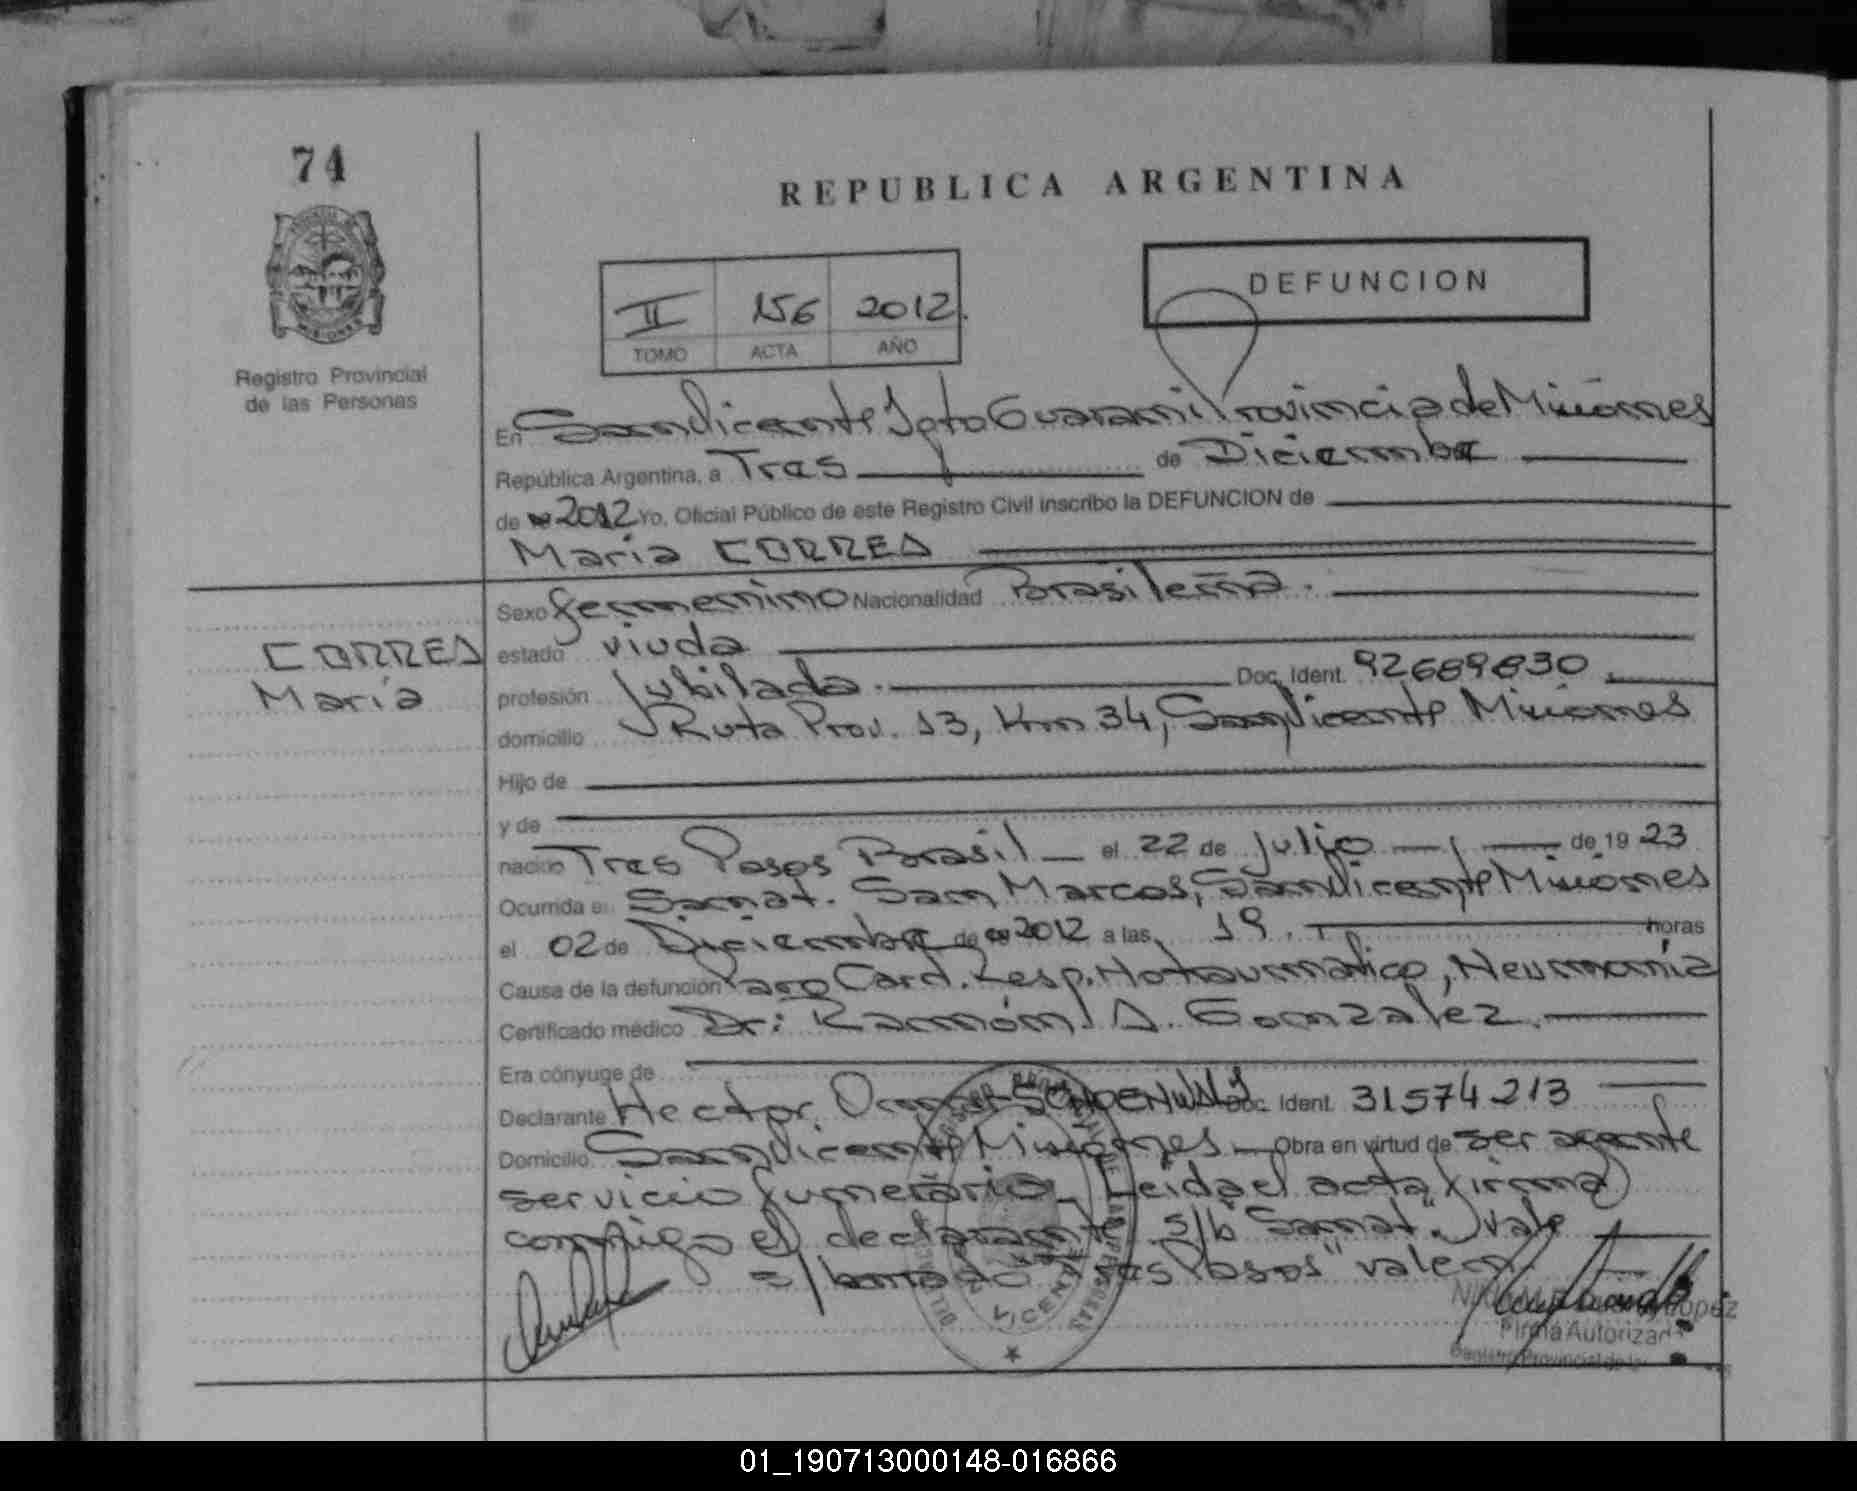 74
REPUBLICA ARGENTINA
Registro Provincial
de las Personas
II 156 2012.
TOMO ACTA AÑO
DEFUNCION
En San Vicente Dpto Guarani Provincia de Misiones
República Argentina, a Tres de Diciembre
de 2012 Yo, Oficial Público de este Registro Civil inscribo la DEFUNCION de
Maria CORREA
CORREA
María
Sexo femenino Nacionalidad Brasileña.
estado viuda
profesión Jubilada. Doc. Ident. 92689830
domicilio Ruta Prov. 13, Km 34, San Vicente Misiones
Hijo de
y de
nacido Tres Pasos Brasil el 22 de Julio de 19 23
Ocurrida en Sanat. San Marcos, San Vicente Misiones
el 02 de Diciembre de 2012 a las 19. horas
Causa de la defunción Paro Card. Resp. No traumatico, Neumonía
Certificado médico Dr: Ramón A. Gonzalez.
Era cónyuge de
Declarante Hector Doc. Ident. 31574213
Domicilio San Vicente Misiones Obra en virtud de ser agente
servicio funerario. Leida el acta firma
conmigo el declarante s/b "Sanat". vale
"Tres Pasos" valen.
VICENTE
Firma Autorizada
Registro Provincial de las
01_190713000148-016866